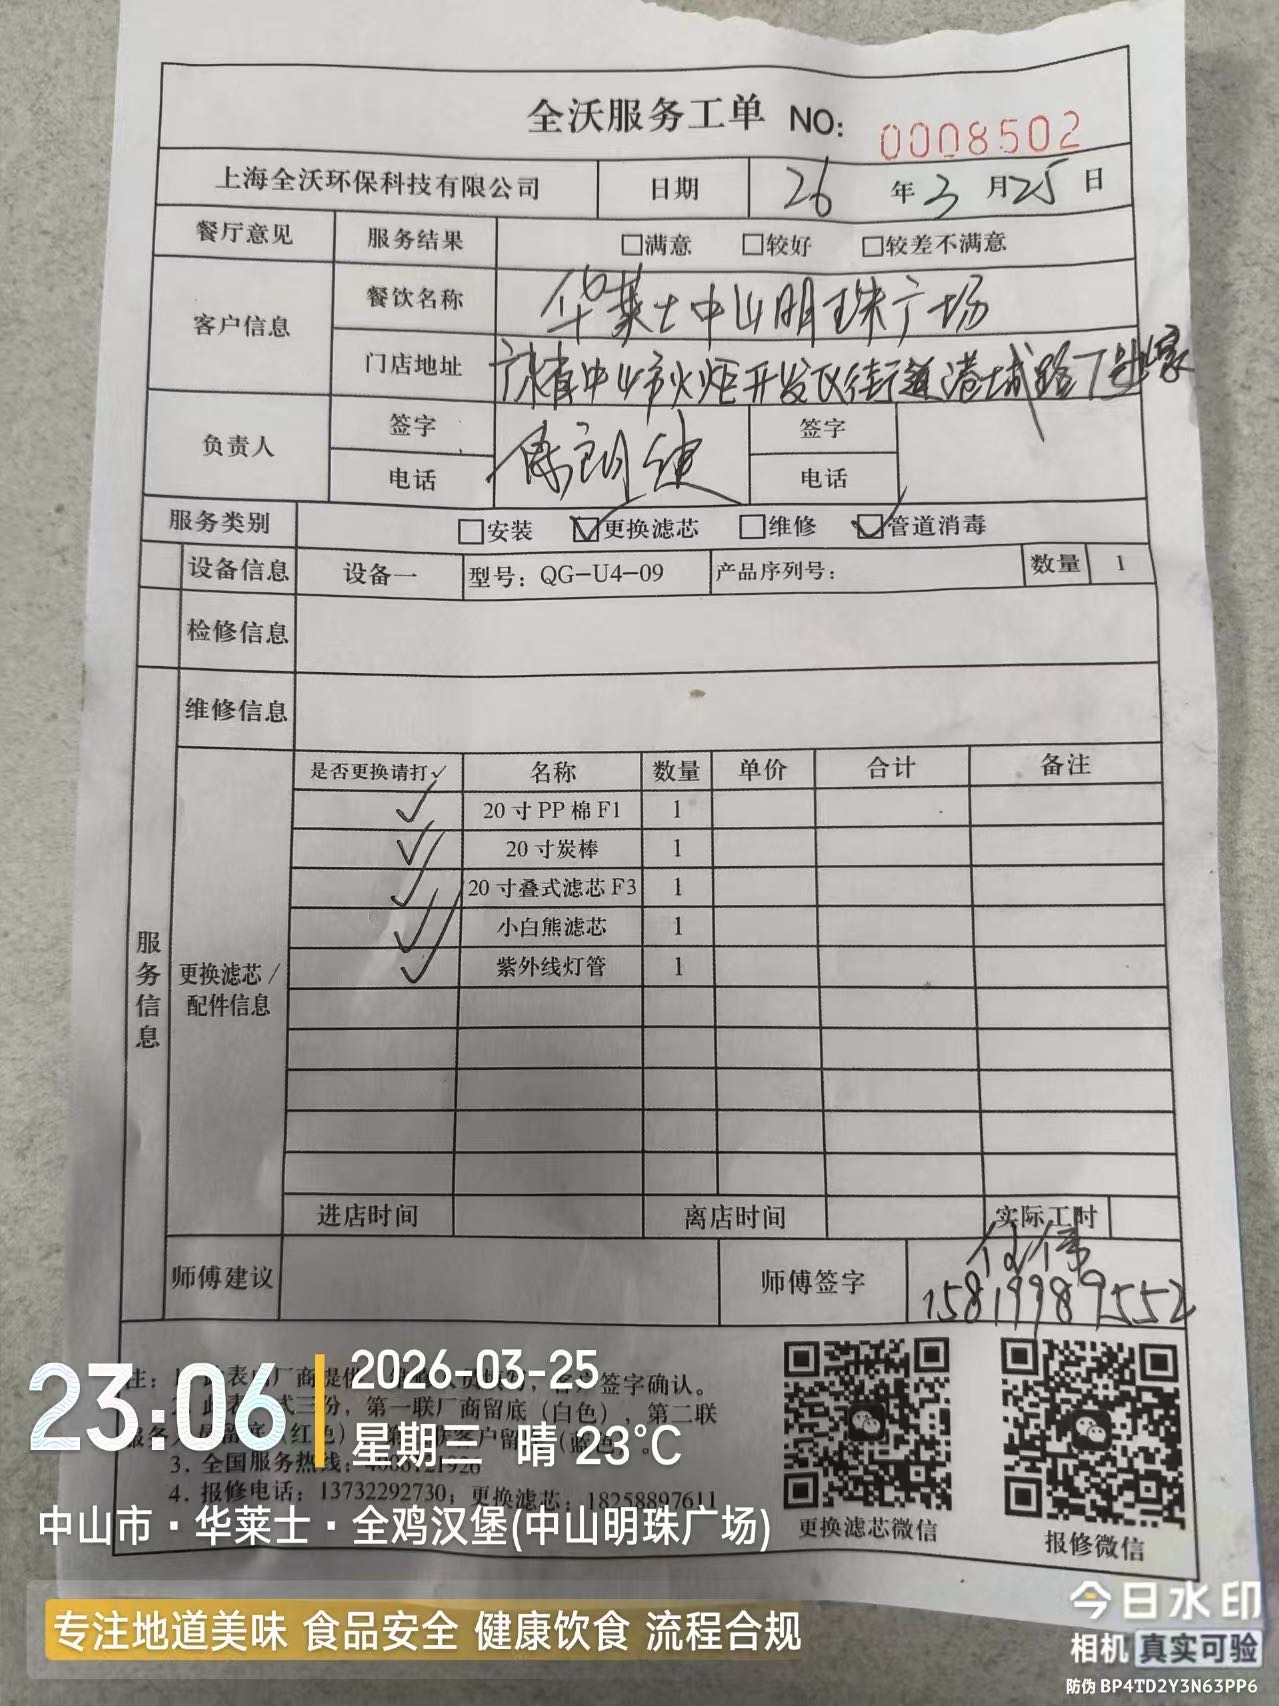 全沃服务工单 NO: 0008502
上海全沃环保科技有限公司 日期 26 年 3 月 25 日
餐厅意见 服务结果 □满意 □较好 □较差不满意
客户信息 餐饮名称 华莱士中山明珠广场
门店地址 广东省中山市火炬开发区街道港城路
负责人 签字 签字
电话 电话
服务类别 □安装 ☑更换滤芯 □维修 ☑管道消毒
设备信息 设备一 型号：QG-U4-09 产品序列号： 数量 1
检修信息
维修信息
服务信息
更换滤芯/配件信息
是否更换请打✓ 名称 数量 单价 合计 备注
✓ 20寸PP棉F1 1
✓ 20寸炭棒 1
✓ 20寸叠式滤芯F3 1
✓ 小白熊滤芯 1
✓ 紫外线灯管 1
进店时间 离店时间 实际工时
师傅建议 师傅签字 15819989552
注：
签字确认。
式三份，第一联厂商留底（白色），第二联
（红色）
3. 全国服务热线：
4. 报修电话：13732292730；更换滤芯：18258897611
更换滤芯微信 报修微信
23:06 2026-03-25
星期三 晴 23°C
中山市·华莱士·全鸡汉堡(中山明珠广场)
专注地道美味 食品安全 健康饮食 流程合规
今日水印
相机 真实可验
防伪 BP4TD2Y3N63PP6